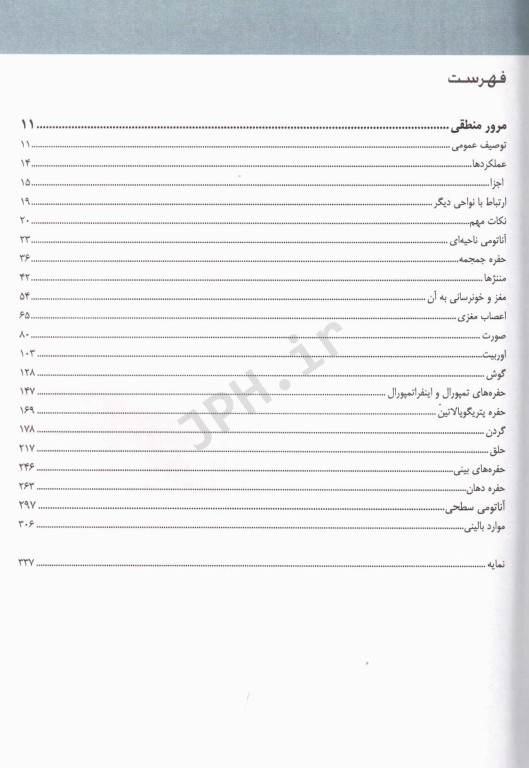 فهرست
مرور منطقی ........ ۱۱
توصیف عمومی ........ ۱۱
عملکردها ........ ۱۴
اجزا ........ ۱۵
ارتباط با نواحی دیگر ........ ۱۹
نکات مهم ........ ۲۰
آناتومی ناحیه‌ای ........ ۲۳
حفره جمجمه ........ ۳۶
مننژها ........ ۴۲
مغز و خونرسانی به آن ........ ۵۴
اعصاب مغزی ........ ۶۵
صورت ........ ۸۰
اوربیت ........ ۱۰۳
گوش ........ ۱۲۸
حفره‌های تمپورال و اینفراتمپورال ........ ۱۴۷
حفره پتریگوپالاتین ........ ۱۶۹
گردن ........ ۱۷۸
حلق ........ ۲۱۷
حفره‌های بینی ........ ۲۴۶
حفره دهان ........ ۲۶۳
آناتومی سطحی ........ ۲۹۷
موارد بالینی ........ ۳۰۶
نمایه ........ ۳۳۷
JPH.ir